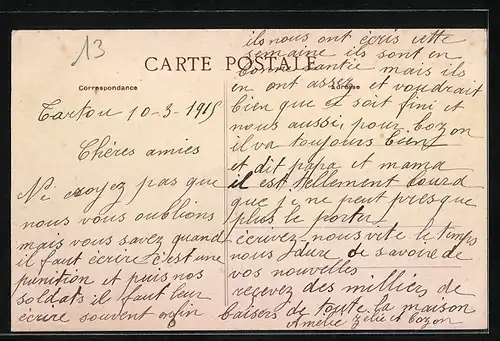 13
CARTE POSTALE
Correspondance
Adresse
Tartou 10-3-1915
Chéres amies
Ne croyez pas que
nous vous oublions
mais vous savez quand
il faut écrire c'est une
punition et puis nos
soldats il faut leur
écrire souvent enfin
ils nous ont écris cette
semaine ils sont en
bonne santée mais ils
en ont assez et voudrait
bien que se soit fini et
nous aussi, pour bozon
il va toujours bien
et dit papa et mama
il est tellement lourd
que je ne peut presque
plus le porter
écrivez-nous vite le temps
nous dure de savoire de
vos nouvelles
recevez des milliers de
baisers de toute la maison
Amélie Zélie et bozon